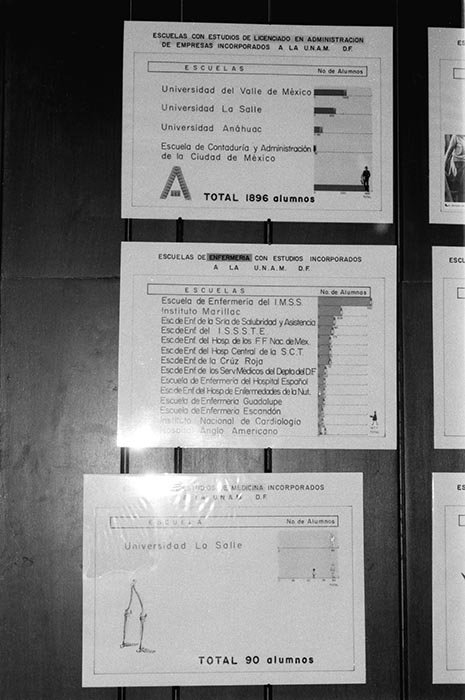 ESCUELAS CON ESTUDIOS DE LICENCIADO EN ADMINISTRACION
DE EMPRESAS INCORPORADOS A LA U.N.A.M. D.F.
ESCUELAS No. de Alumnos
Universidad del Valle de México
Universidad La Salle
Universidad Anáhuac
Escuela de Contaduría y Administración
de la Ciudad de México
TOTAL
A TOTAL 1896 alumnos
ESCUELAS DE ENFERMERIA CON ESTUDIOS INCORPORADOS
A LA U.N.A.M. D.F.
ESCUELAS No. de Alumnos
Escuela de Enfermería del I.M.S.S.
Instituto Marillac
Esc. de Enf. de la Sría de Salubridad y Asistencia
Esc. de Enf. del I.S.S.S.T.E.
Esc. de Enf. del Hosp. de los F F Nac. de Mex.
Esc. de Enf. del Hosp Central de la S.C.T.
Esc. de Enf. de la Crúz Roja
Esc. de Enf. de los Serv. Médicos del Depto. del D.F
Escuela de Enfermería del Hospital Español
Esc. de Enf. del Hosp de Enfermedades de la Nut.
Escuela de Enfermería Guadalupe
Escuela de Enfermería Escandón
Instituto Nacional de Cardiología
Hospital Anglo Americano
TOTAL
ESTUDIOS DE MEDICINA INCORPORADOS
A LA U.N.A.M. D.F.
ESCUELA No. de Alumnos
Universidad La Salle
TOTAL
TOTAL 90 alumnos